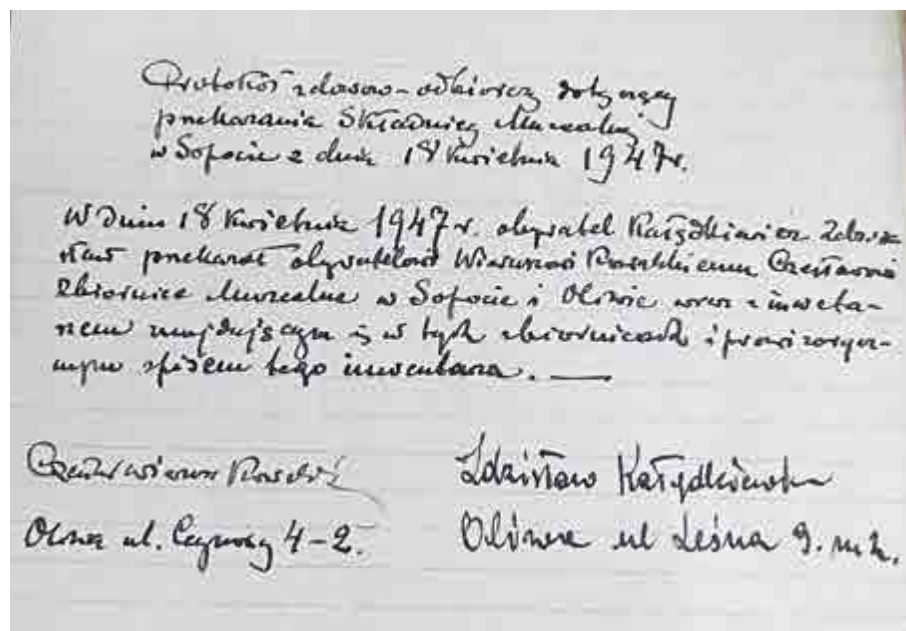 Protokół zdawczo-odbiorczy dotyczący
przekazania Składnicy Muzealnej
w Sopocie z dnia 18 kwietnia 1947 r.
W dniu 18 kwietnia 1947 r. obywatel Kałędkiewicz Zdzi-
sław przekazał obywatelowi Wierusz Kowalskiemu Czesławowi
zbiornice Muzealne w Sopocie i Oliwie wraz z inwenta-
rzem znajdującym się w tych zbiornicach i prowizorycz-
nym spisem tego inwentarza. —
Czesław Wierusz Kowalski
Oliwa ul. 4-2.
Zdzisław Kałędkiewicz
Oliwa ul Leśna 9. m 2.